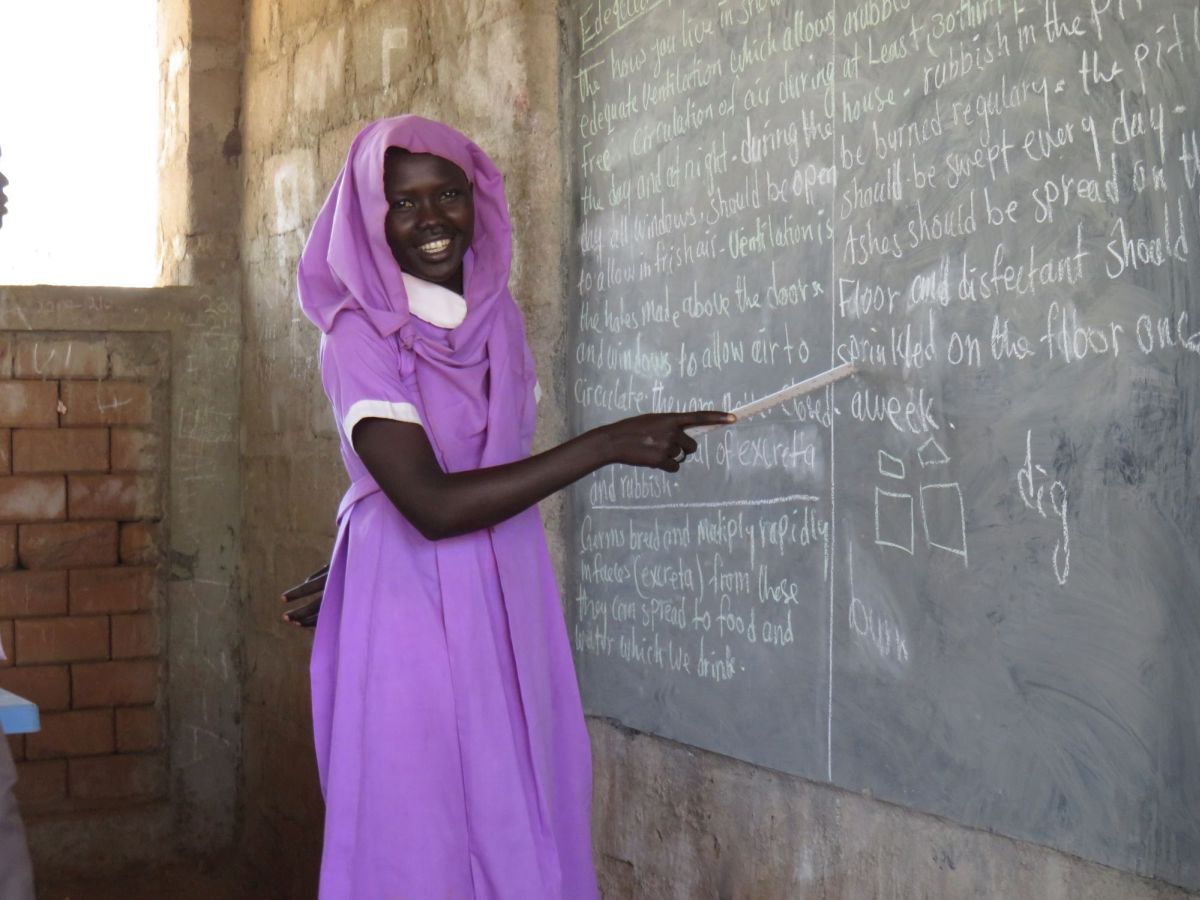 the how you live in
edequate ventilation which allows
free circulation of air during
the day and at night. during the
day all windows, should be open
to allow in frish air. Ventilation is
the holes made above the doors
and windows to allow air to
Circulate. the closed.
of excreta
and rubbish.
Germs bread and Maltiply rapidly
in faeces (excreta) from these
they can spread to food and
water which we drink.
rubbish
at Least, 30
house. rubbish in the pit
be burned regulary. the pit
should be swept every day.
Ashes should be spread on
Floor and disfectant should
sprinkled on the floor once
a week.
dig
burn